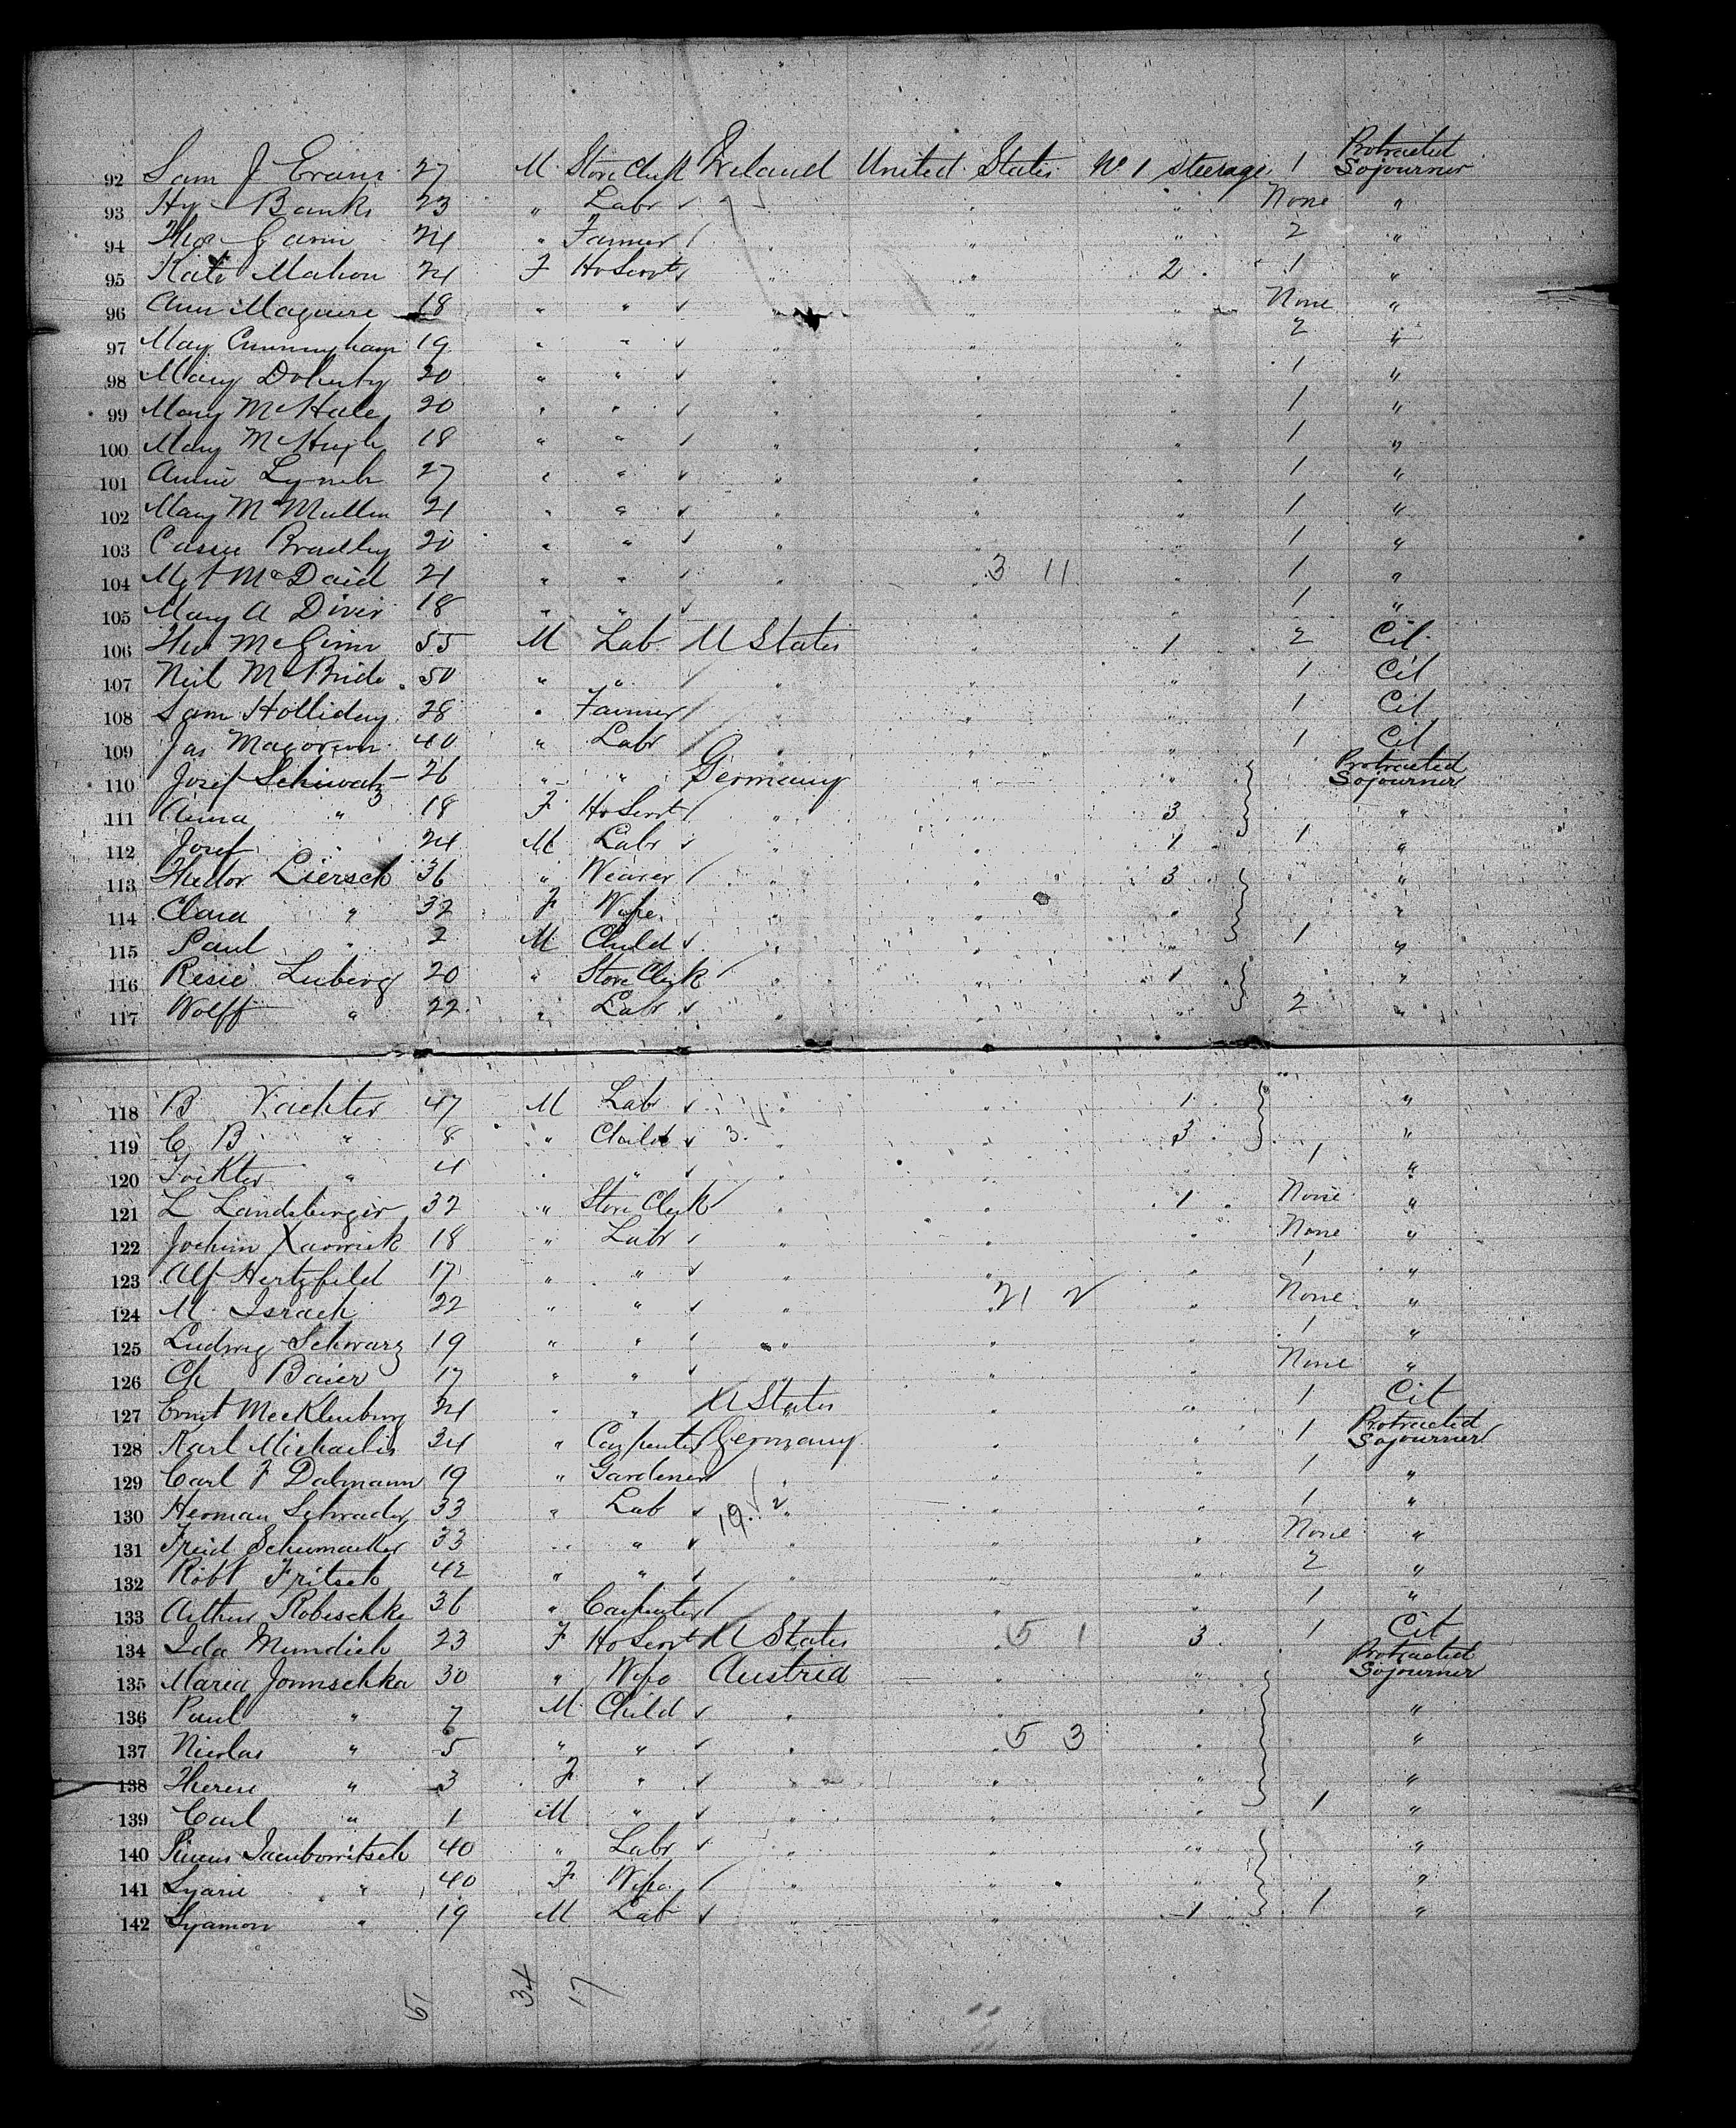 92 Sam J Evans 27 M Store Clerk Ireland United States No 1 Steerage 1 Protracted Sojourner
93 Hy Banks 23 " Labr " " " None "
94 Thos 24 " Farmer " " " 2 "
95 Kate Mahon 24 F Ho Servt " " 2 1 "
96 Ann Maguire 18 " " " " " None "
97 Mary Cunningham 19 " " " " " 2 "
98 Mary Doherty 20 " " " " " 1 "
99 Mary McHale 20 " " " " " 1 "
100 Mary McHugh 18 " " " " " 1 "
101 Annie Lynch 27 " " " " " 1 "
102 Mary McMullen 21 " " " " " 1 "
103 Cassie Bradley 20 " " " " " 1 "
104 Mgt McDaid 21 " " " 3 11 " 1 "
105 Mary A Diver 18 " " " " " 1 "
106 Thos McGinn 55 M Lab U States " 1 2 Cit
107 Neil McBride 50 " " " " " 1 Cit
108 Sam Holliday 28 " Farmer " " " 1 Cit
109 Jas Magorian 40 " Labr " " " 1 Cit
110 Josef Schwatz 26 " " Germany " " Protracted Sojourner
111 Anna " 18 F Ho Servt " " 3 "
112 Josef " 24 M Labr " " 1 1 "
113 Thedor Liersch 36 " Weaver " " 3 "
114 Clara " 32 F Wife " " " "
115 Paul " 2 M Child " " " 1 "
116 Resie Luberg 20 " Store Clerk " " 1 "
117 Wolff " 22 " Labr " " " 2 "
118 B Vachter 47 M Labr " " 1 "
119 C B " 8 " Child 3 " " 3 "
120 " 4 " " " " " 1 "
121 L Landsberger 32 " Store Clerk " " 1 None "
122 Jochim 18 " Labr " " " None "
123 Alf Hertzfeld 17 " " " " " 1 "
124 M Israel 22 " " " 21 2 " None "
125 Ludwig Schwarz 19 " " " " " 1 "
126 Ch Baier 17 " " " " " None "
127 Ernst Mecklenburg 24 " " U States " " 1 Cit
128 Karl Michaelis 34 " Carpenter Germany " " 1 Protracted Sojourner
129 Carl F Dalmann 19 " Gardener " " " 1 "
130 Herman Schrader 33 " Lab 19 " " " 1 "
131 Fried Schumacher 33 " " " " " None "
132 Robt Fritsch 42 " " " " " 2 "
133 Arthur Robischke 36 " Carpenter " " " 1 "
134 Ida Mundich 23 F Ho Servt U States 5 1 3 1 Cit
135 Maria Jonnschka 30 " Wife Austria " " Protracted Sojourner
136 Paul " 7 M Child " " " "
137 Nicolas " 5 " " " 5 3 " "
138 Therese " 3 F " " " " "
139 Carl " 1 M " " " " 1 "
140 Jacubowitsch 40 " Labr " " " "
141 " 40 F Wife " " " "
142 " 19 M Lab " " 1 1 "
51 34 17